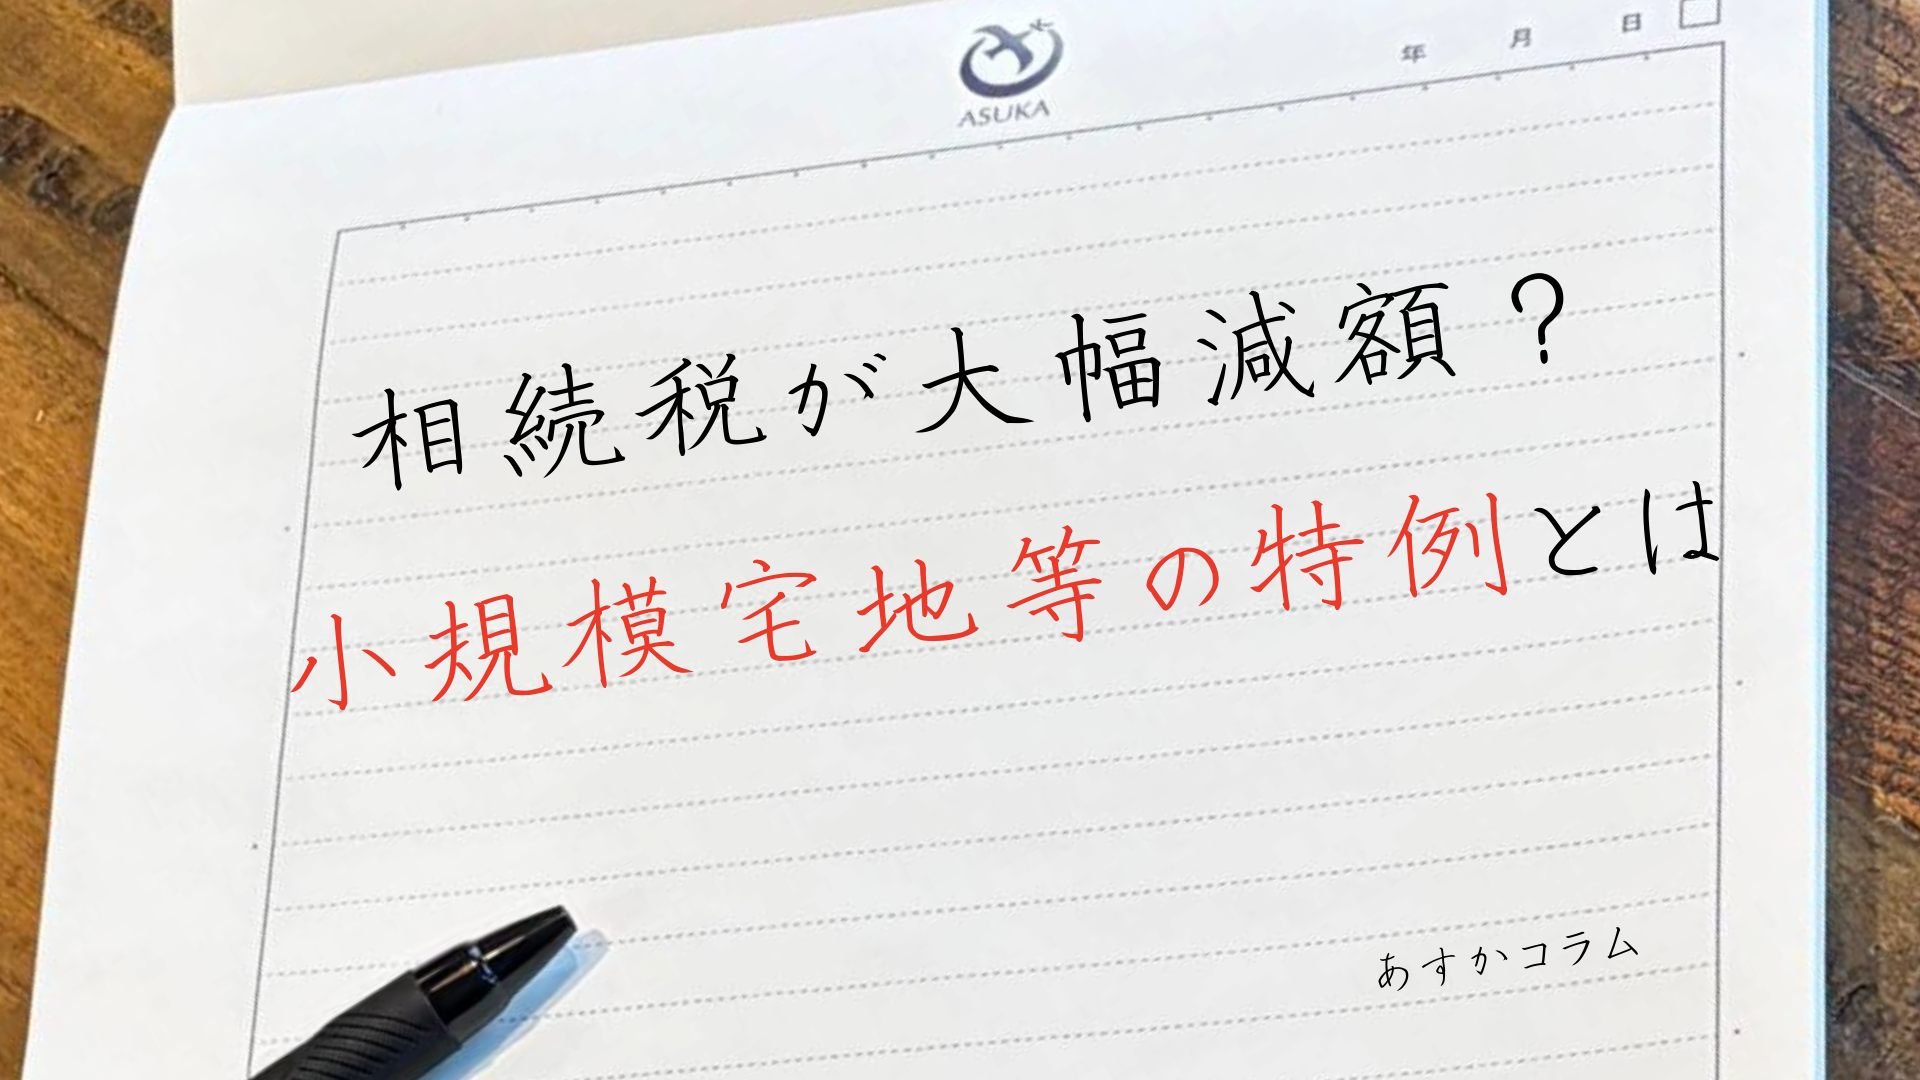 ASUKA
年 月 日
相続税が大幅減額？
小規模宅地等の特例とは
あすかコラム